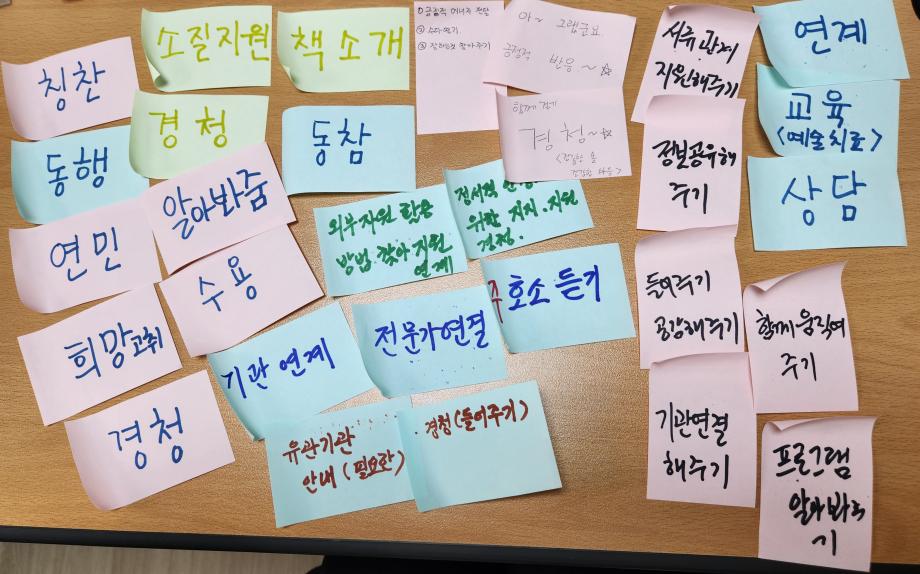 칭찬
소질지원
책 소개
① 긍정적 에너지 전달
②
③
아~ 그랬군요.
긍정적 반응.~☆
서류 관계
지원해주기
연계
동행
경청
동참
함께 걷기
경청~☆
정보공유해
주기
교육
<예술치료>
상담
연민
알아봐줌
외부자원 활용
방법. 찾아 지원
연계
정서적 안정
위한 지지.지원
경청.
희망고취
수용
기관 연계
전문가연결
주호소 듣기
들어주기
공감해주기
함께 움직여
주기
경청
유관기관
안내 (필요한)
경청(들어주기)
기관연결
해주기
프로그램
알아봐주
기